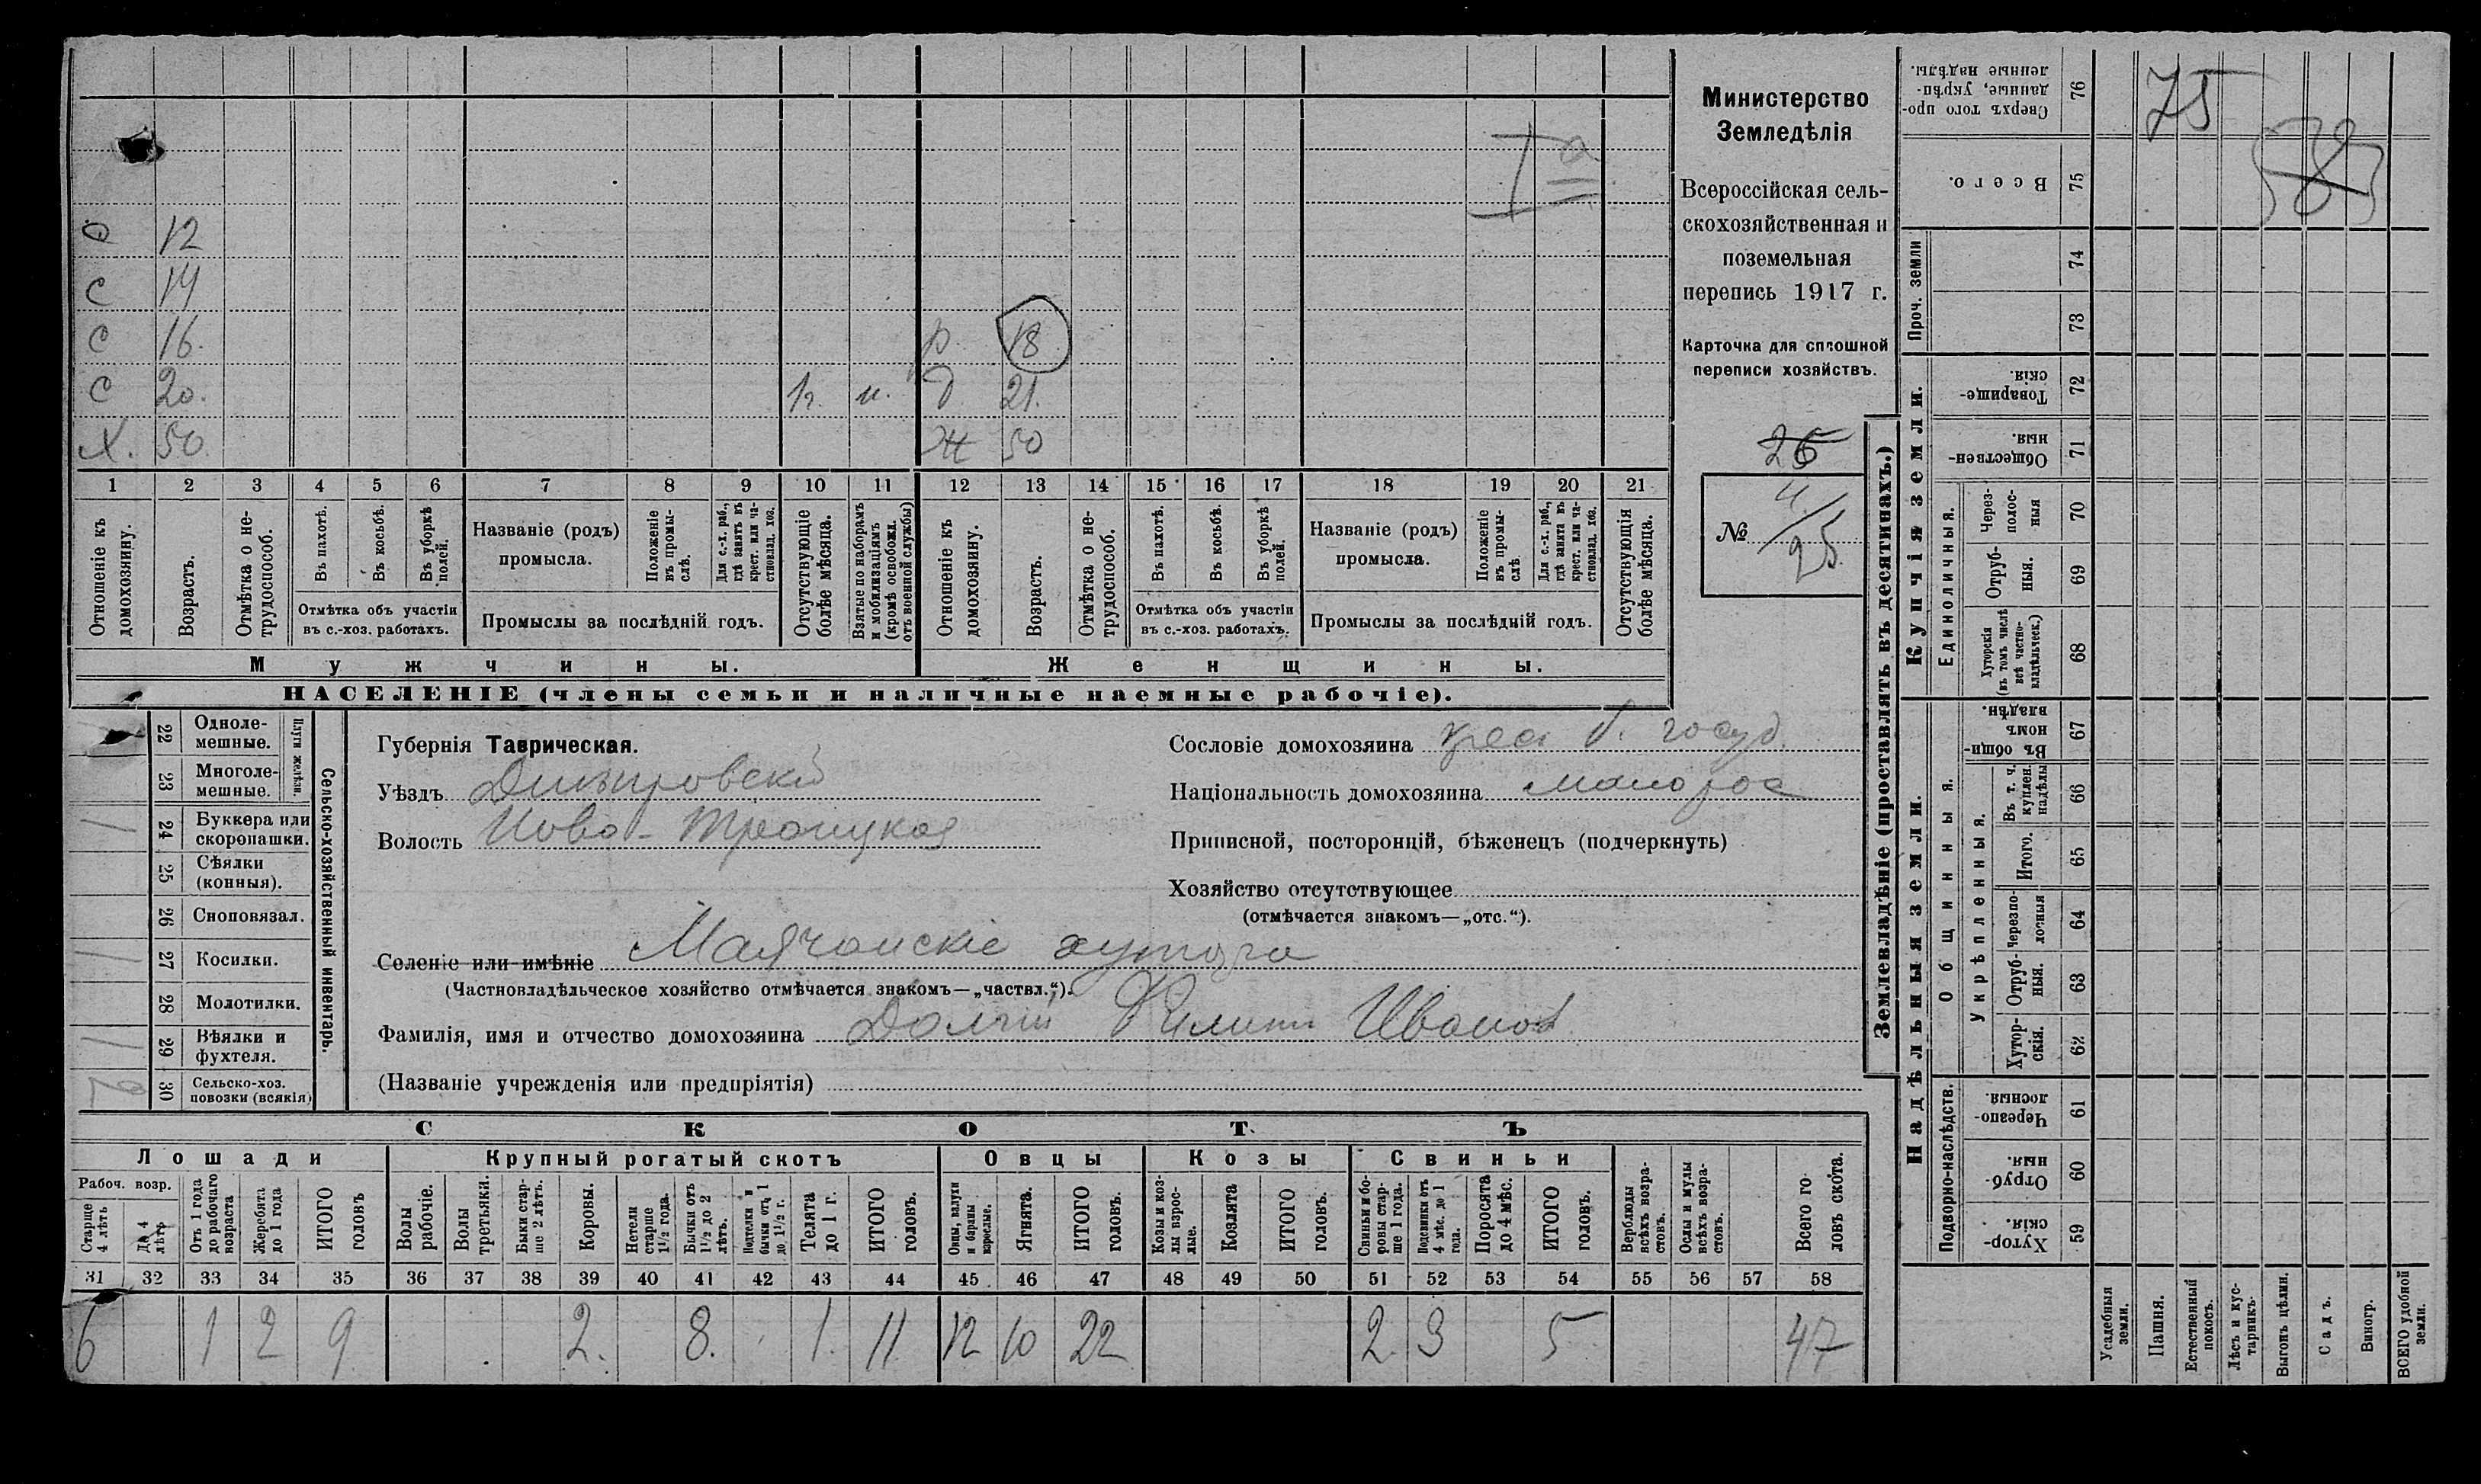 Министерство
Земледѣлія
Всероссійская сель-
скохозяйственная и
поземельная
перепись 1917 г.
Карточка для сплошной
переписи хозяйствъ.
26
№ 4/25
Iа
О 12
С 14
С 16. р. 18
С 20. п. и. д 21.
Х. 50. Ж 50
1 2 3 4 5 6 7 8 9 10 11 12 13 14 15 16 17 18 19 20 21
Отношеніе къ домохозяину.
Возрастъ.
Отмѣтка о не-трудоспособ.
Въ пахотѣ.
Въ косьбѣ.
Въ уборкѣ полей.
Отмѣтка объ участіи въ с.-хоз. работахъ.
Названіе (родъ) промысла.
Положеніе въ промы-слѣ.
Для с.-х. раб., гдѣ занятъ въ крест. или ча-стновлад. хоз.
Промыслы за послѣдній годъ.
Отсутствующіе болѣе мѣсяца.
Взятые по наборамъ и мобилизаціямъ (кромѣ освобожд. отъ военной службы)
Отношеніе къ домохозяину.
Возрастъ.
Отмѣтка о не-трудоспособ.
Въ пахотѣ.
Въ косьбѣ.
Въ уборкѣ полей.
Отмѣтка объ участіи въ с.-хоз. работахъ.
Названіе (родъ) промысла.
Положеніе въ промы-слѣ
Для с.-х. раб., гдѣ занята въ крест. или ча-стновлад. хоз.
Промыслы за послѣдній годъ.
Отсутствующія болѣе мѣсяца.
Мужчины. Женщины.
НАСЕЛЕНІЕ (члены семьи и наличные наемные рабочіе).
Сельско-хозяйственный инвентарь.
Плуги желѣзн.
22 Одноле-мешные.
23 Многоле-мешные.
/ 24 Буккера или скоропашки.
25 Сѣялки (конныя).
26 Сноповязал.
/ 27 Косилки.
28 Молотилки.
/ 29 Вѣялки и фухтеля.
30 Сельско-хоз. повозки (всякія)
Губернія Таврическая.
Уѣздъ Днѣпровскій
Волость Ново-Троицкая
Сословіе домохозяина крес б. госуд.
Національность домохозяина малорос
Приписной, посторонній, бѣженецъ (подчеркнуть)
Хозяйство отсутствующее
(отмѣчается знакомъ—„отс.“).
Селеніе или имѣніе Маячанскіе хутора
(Частновладѣльческое хозяйство отмѣчается знакомъ—„частвл.“).
Фамилія, имя и отчество домохозяина Долгій Филипп Иванов
(Названіе учрежденія или предпріятія)
СКОТЪ
Лошади Крупный рогатый скотъ Овцы Козы Свиньи
Рабоч. возр.
Старше 4 лѣтъ
До 4 лѣтъ
Отъ 1 года до рабочаго возраста
Жеребята до 1 года
ИТОГО головъ
Волы рабочіе.
Волы третьяки.
Быки стар-ше 2 лѣтъ.
Коровы.
Нетели старше 1½ года.
Бычки отъ 1½ до 2 лѣтъ.
Подтелки и бычки отъ 1 до 1½ г.
Телята до 1 г.
ИТОГО головъ.
Овцы, валухи и бараны взрослые.
Ягнята.
ИТОГО головъ.
Козы и коз-лы взрос-лые.
Козлята
ИТОГО головъ.
Свиньи и бо-ровы стар-ше 1 года.
Подсвинки отъ 4 мѣс. до 1 года.
Поросята до 4 мѣс.
ИТОГО головъ.
Верблюды всѣхъ возра-стовъ.
Ослы и мулы всѣхъ возра-стовъ.
Всего го-ловъ скота.
31 32 33 34 35 36 37 38 39 40 41 42 43 44 45 46 47 48 49 50 51 52 53 54 55 56 57 58
6 1 2 9 2. 8. 1. 11 12 10 22 2 3 5 47
Землевладѣніе (проставлять въ десятинахъ.)
Купчія земли.
Надѣльныя земли.
Проч. земли
Единоличныя.
Общинныя.
Укрѣпленныя.
Подворно-наслѣдств.
Сверхъ того про-данные, укрѣп-ленные надѣлы. 76 75
Всего. 75
74
73
Товарище-скія. 72
Обществен-ныя. 71
Через-полос-ныя 70
Отруб-ныя. 69
Хуторскія (въ томъ числѣ всѣ частно-владѣльческ.) 68
Въ общи-номъ владѣн. 67
Въ т. ч. куплен. надѣлы 66
Итого. 65
Черезпо-лосныя 64
Отруб-ныя. 63
Хутор-скія. 62
Черезпо-лосныя. 61
Отруб-ныя. 60
Хутор-скія. 59
Усадебныя земли.
Пашня.
Естественный покосъ.
Лѣсъ и кус-тарникъ.
Выгонъ цѣлин.
Садъ.
Виногр.
ВСЕГО удобной земли.